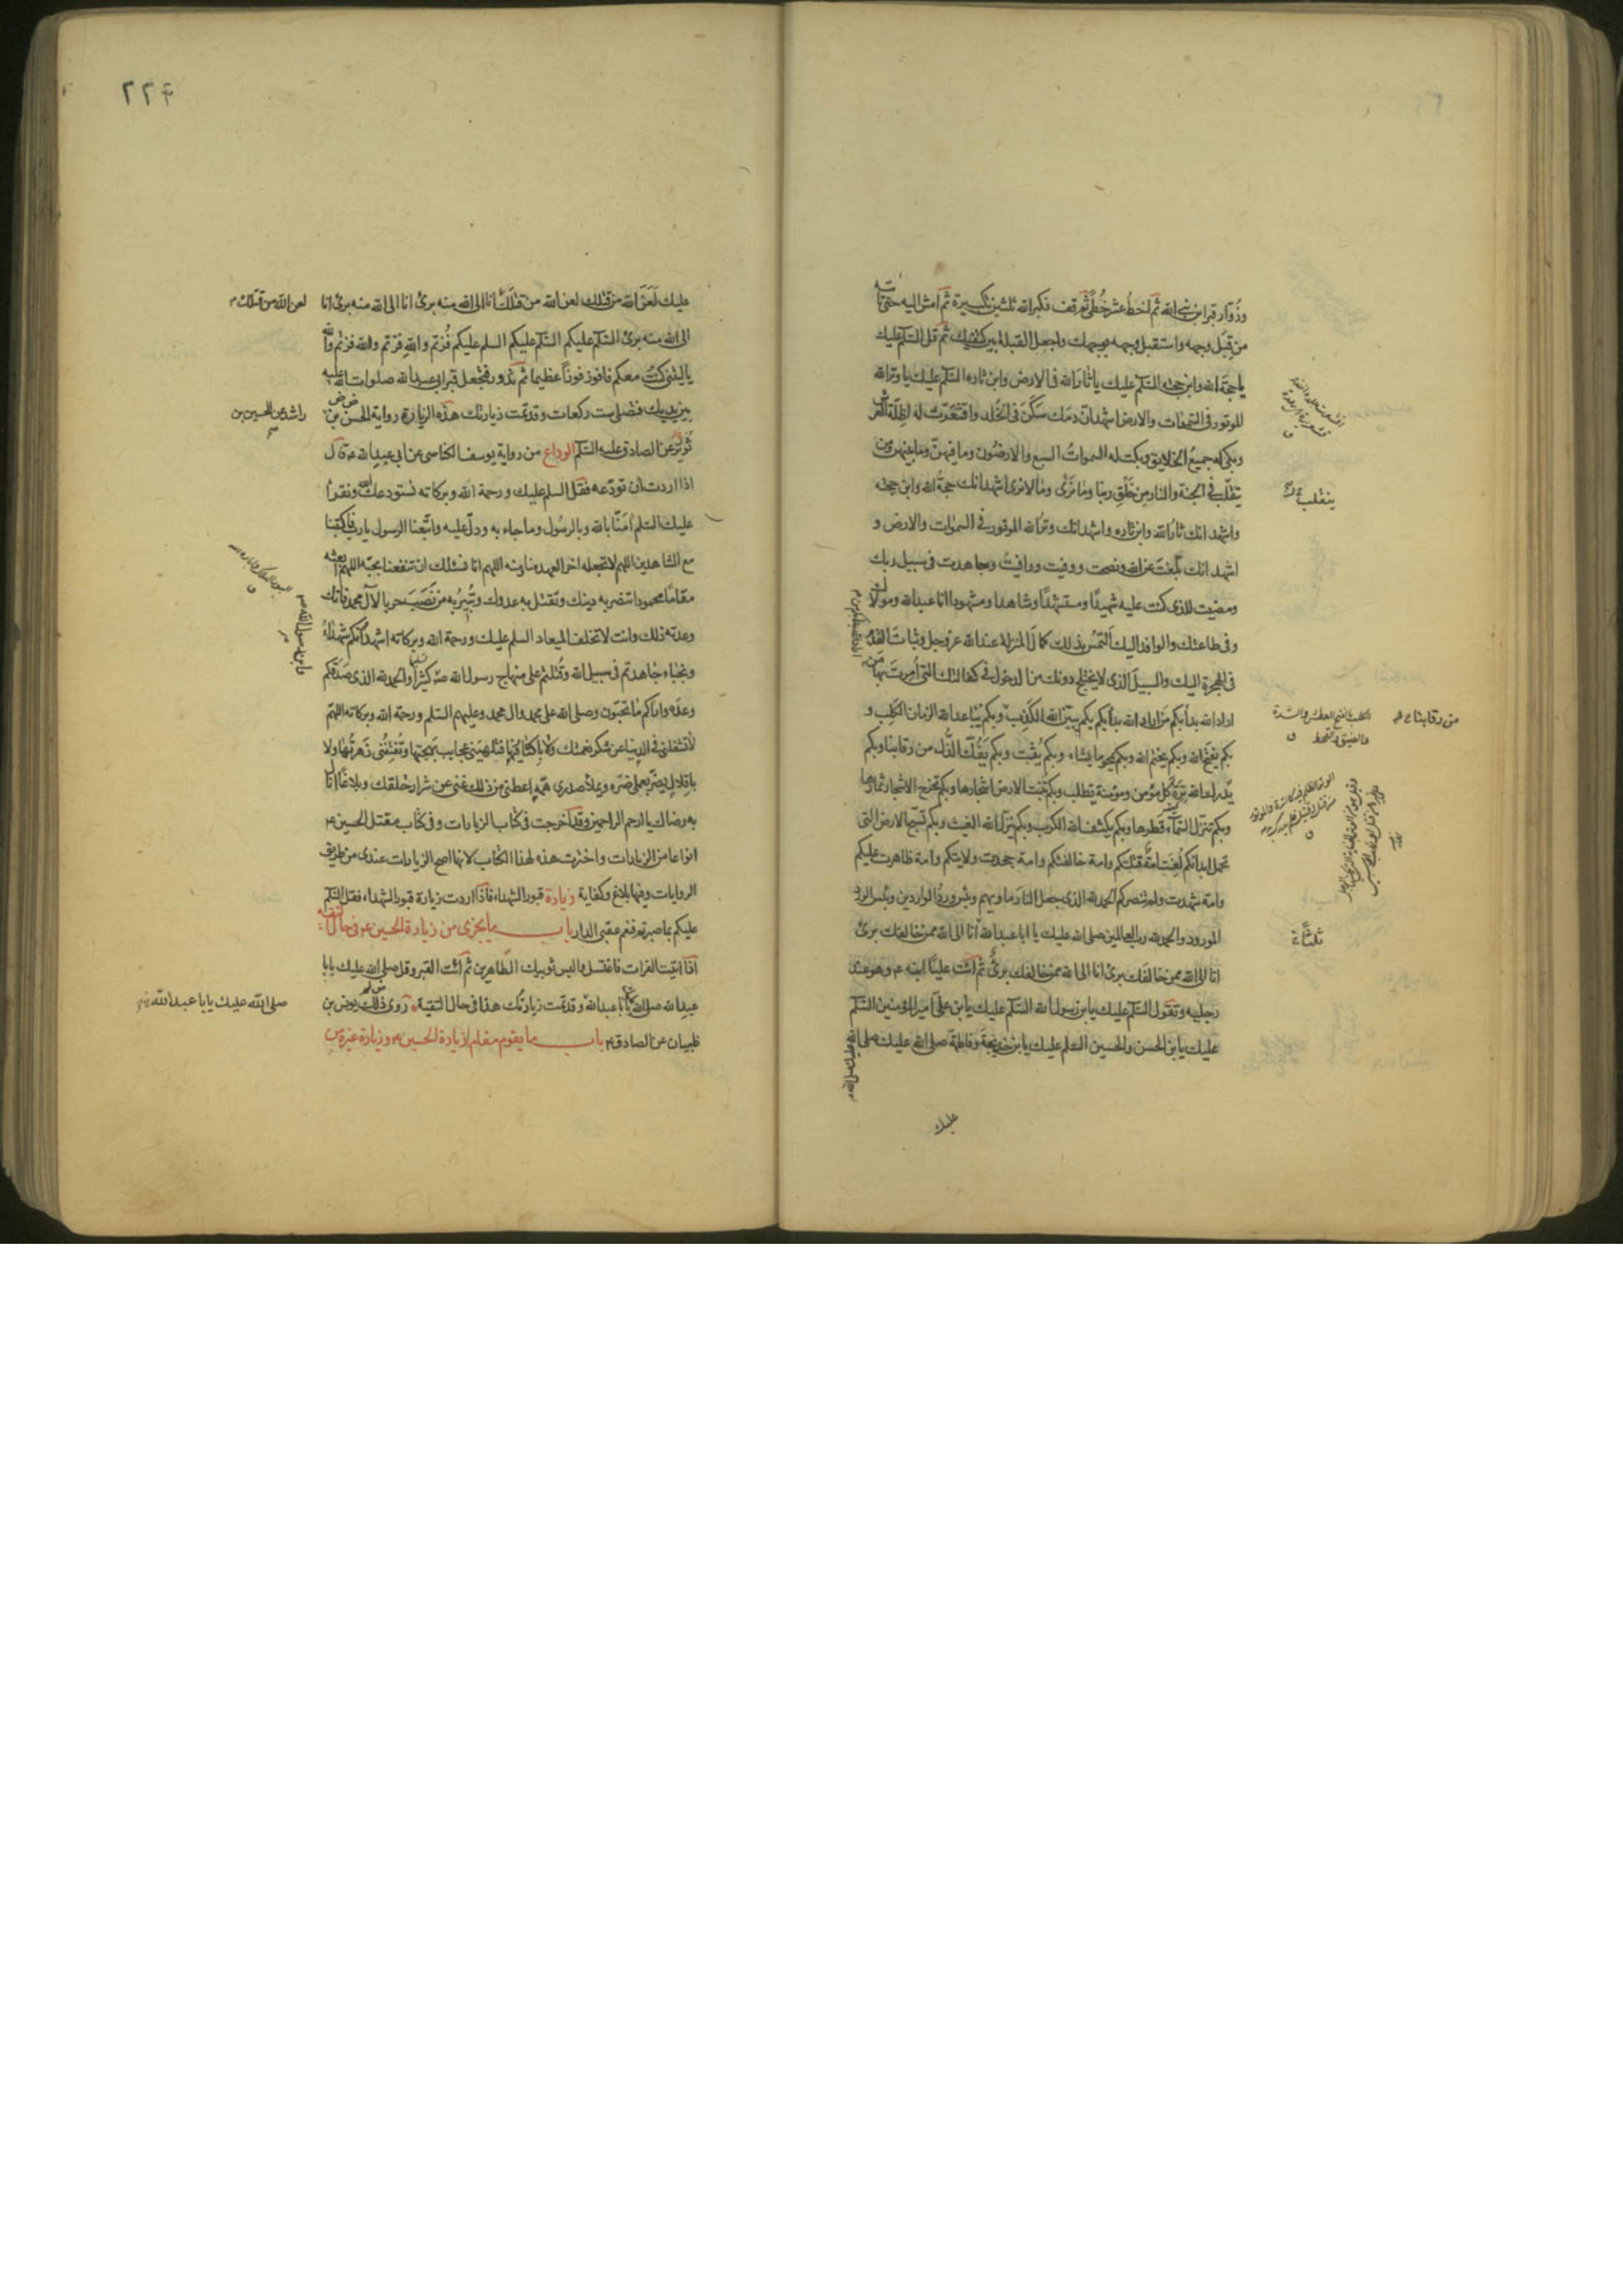 وزوار قبر ابن نبي الله ثم اخط عشر خطى ثم قف فكبر الله ثلثين تكبيرة ثم امش اليه حتى تاتيه
من قبل وجهه واستقبل وجهه بوجهك واجعل القبلة بين كتفيك ثم قل السلام عليك
يا حجة الله وابن حجته السلام عليك يا ثار الله فى الارض وابن ثاره السلام عليك يا وتر الله
الموتور فى السموات والارض اشهد ان دمك سكن فى الخلد واقشعرت له اظلة العرش
وبكى له جميع الخلايق وبكت له السموات السبع والارضون وما فيهن وما بينهن ومن
يتقلب فى الجنة والنار من خلق ربنا وما نرى وما لا نرى اشهد انك حجة الله وابن حجته
واشهد انك ثار الله وابن ثاره واشهد انك وتر الله الموتور فى السموات والارض و
اشهد انك بلغت عن الله ونصحت ووفيت ووافيت وجاهدت فى سبيل ربك
ومضيت للذى كنت عليه شهيدا ومستشهدا وشاهدا ومشهودا انا عبد الله ومولاك
وفى طاعتك والوافد اليك التمس بذلك كمال المنزلة عند الله عز وجل وثبات القدم
فى الهجرة اليك والسبيل الذى لا يختلج دونك من الدخول فى كفالتك التى امرت بها من
اراد الله بدأ بكم من اراد الله بدأ بكم بكم يبين الله الكذب وبكم يباعد الله الزمان الكلب و
بكم يفتح الله وبكم يختم الله وبكم يمحو ما يشاء وبكم يثبت وبكم يفك الذل من رقابنا وبكم
يدرك الله ترة كل مؤمن ومؤمنة تطلب وبكم تنبت الارض اشجارها وبكم تخرج الاشجار ثمارها
وبكم تنزل السماء قطرها وبكم يكشف الله الكرب وبكم ينزل الله الغيث وبكم تسبح الارض التى
تحمل ابدانكم لعنت امة قتلتكم وامة خالفتكم وامة جحدت ولايتكم وامة ظاهرت عليكم
وامة شهدت ولم تنصركم الحمد لله الذى جعل النار ماويهم وبئس ورد الواردين وبئس الورد
المورود والحمد لله رب العالمين صلى الله عليك يا ابا عبد الله انا الى الله ممن خالفك برئ
انا الى الله ممن خالفك برئ انا الى الله ممن خالفك برئ ثم ائت عليا ابنه ع وهو عند
رجليه وتقول السلام عليك يابن رسول الله السلام عليك يابن على امير المؤمنين السلام
عليك يابن الحسن والحسين السلام عليك يابن خديجة وفاطمة صلى الله عليك صلى
الله عليك صلى الله
عليك
ينقلب
من رقابنا
ثلثا
٢٢٤
عليك لعن الله من قتلك لعن الله من قتلك انا الى الله منه برئ انا الى الله منه برئ انا
لعن الله من قتلك
الى الله منه برئ السلام عليكم السلام عليكم السلم عليكم فزتم والله فزتم والله فزتم والله
يا ليتنى كنت معكم فافوز فوزا عظيما ثم تدور فتجعل قبر ابى عبد الله صلوات الله عليه
بين يديك فتصلى ست ركعات وقد تمت زيارتك هذه الزيارة رواية الحسن بن
راشد عن الحسين بن
ثوير عن الصادق عليه السلام الوداع من رواية يوسف الكناسى عن ابى عبد الله ع قال
اذا اردت ان تودعه فقل السلم عليك ورحمة الله وبركاته نستودعك الله ونقرأ
عليك السلم امنا بالله وبالرسول وما جاء به ودل عليه واتبعنا الرسول يا رب فاكتبنا
مع الشاهدين اللهم لا تجعله اخر العهد منا ومنه اللهم انا نسئلك ان تنفعنا بحبه اللهم ابعثه
مقاما محمودا تنصر به دينك وتقتل به عدوك وتبير به من نصب حربا لآل محمد فانك
وعدته ذلك وانت لا تخلف الميعاد السلم عليك ورحمة الله وبركاته اشهد انكم شهداء
ونجباء جاهدتم فى سبيل الله وقتلتم على منهاج رسول الله ص كثيرا والحمد لله الذى صدقكم
وعده واراكم ما تحبون وصلى الله على محمد وال محمد وعليهم السلم ورحمة الله وبركاته اللهم
لا تشغلنى فى الدنيا عن شكر نعمتك ولا باكثار فيها فتلهينى عجايب بهجتها وتفتننى زهرتها ولا
باقلال يضر بعملى ضره ويملأ صدرى همه اعطنى من ذلك غنى عن شرار خلقك وبلاغا انال
به رضاك يا ارحم الراحمين وقد اخرجت فى كتاب الزيارات وفى كتاب مقتل الحسين ع
انواعا من الزيارات واخترت هذه لهذا الكتاب لانها اصح الزيارات عندى من طريق
الروايات وفيها بلاغ وكفاية زيارة قبور الشهداء فاذا اردت زيارة قبور الشهداء فقل السلام
عليكم بما صبرتم فنعم عقبى الدار باب ما يجزى من زيارة الحسين ع فى حال التقية
اذا اتيت الفرات فاغتسل والبس ثوبيك الطاهرين ثم ائت القبر وقل صلى الله عليك يابا
عبد الله صلى الله عليك يابا عبد الله وقد تمت زيارتك هذا فى حال التقية روى ذلك يونس بن
صلى الله عليك يابا عبد الله
ظبيان عن الصادق ع باب ما يقوم مقام زيارة الحسين ع وزيارة غيره من